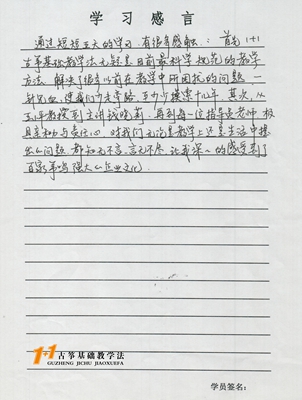 学习感言
通过短短五天的学习,有很多感触:首先1+1
古筝基础教学法无疑是目前最科学规范的教学
方法,解决了很多以前在教学中所困扰的问题,一
针见血,使我们少走弯路,至少少摸索十几年。其次,从
教授到主讲钱晓莉,再到每一位指导员老师,极
具亲和力与责任心,对我们无论是教学上还是生活中提
出的问题,都知无不言,言无不尽,让我深深的感受到了
百家筝鸣强大的企业文化。
1+1古筝基础教学法
GUZHENG JICHU JIAOXUEFA
学员签名: